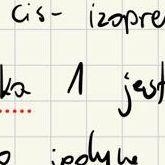 cis- izopre
ka 1 jest
jedyne